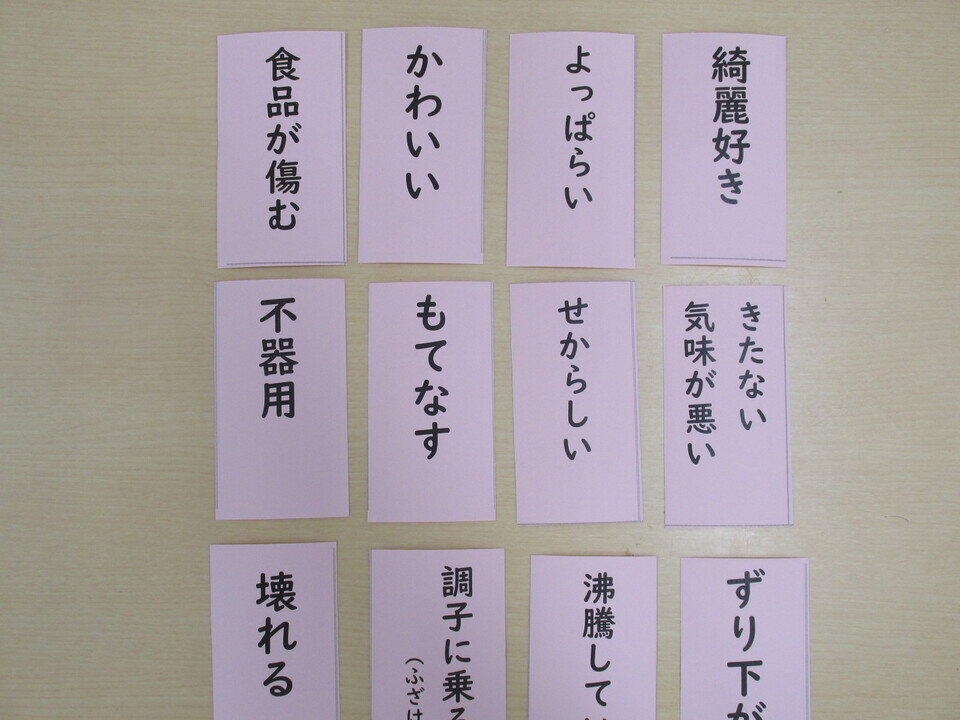 食品が傷む
かわいい
よっぱらい
綺麗好き
不器用
もてなす
せからしい
きたない
気味が悪い
壊れる
調子に乗る
(ふざけ
沸騰して
ずり下が